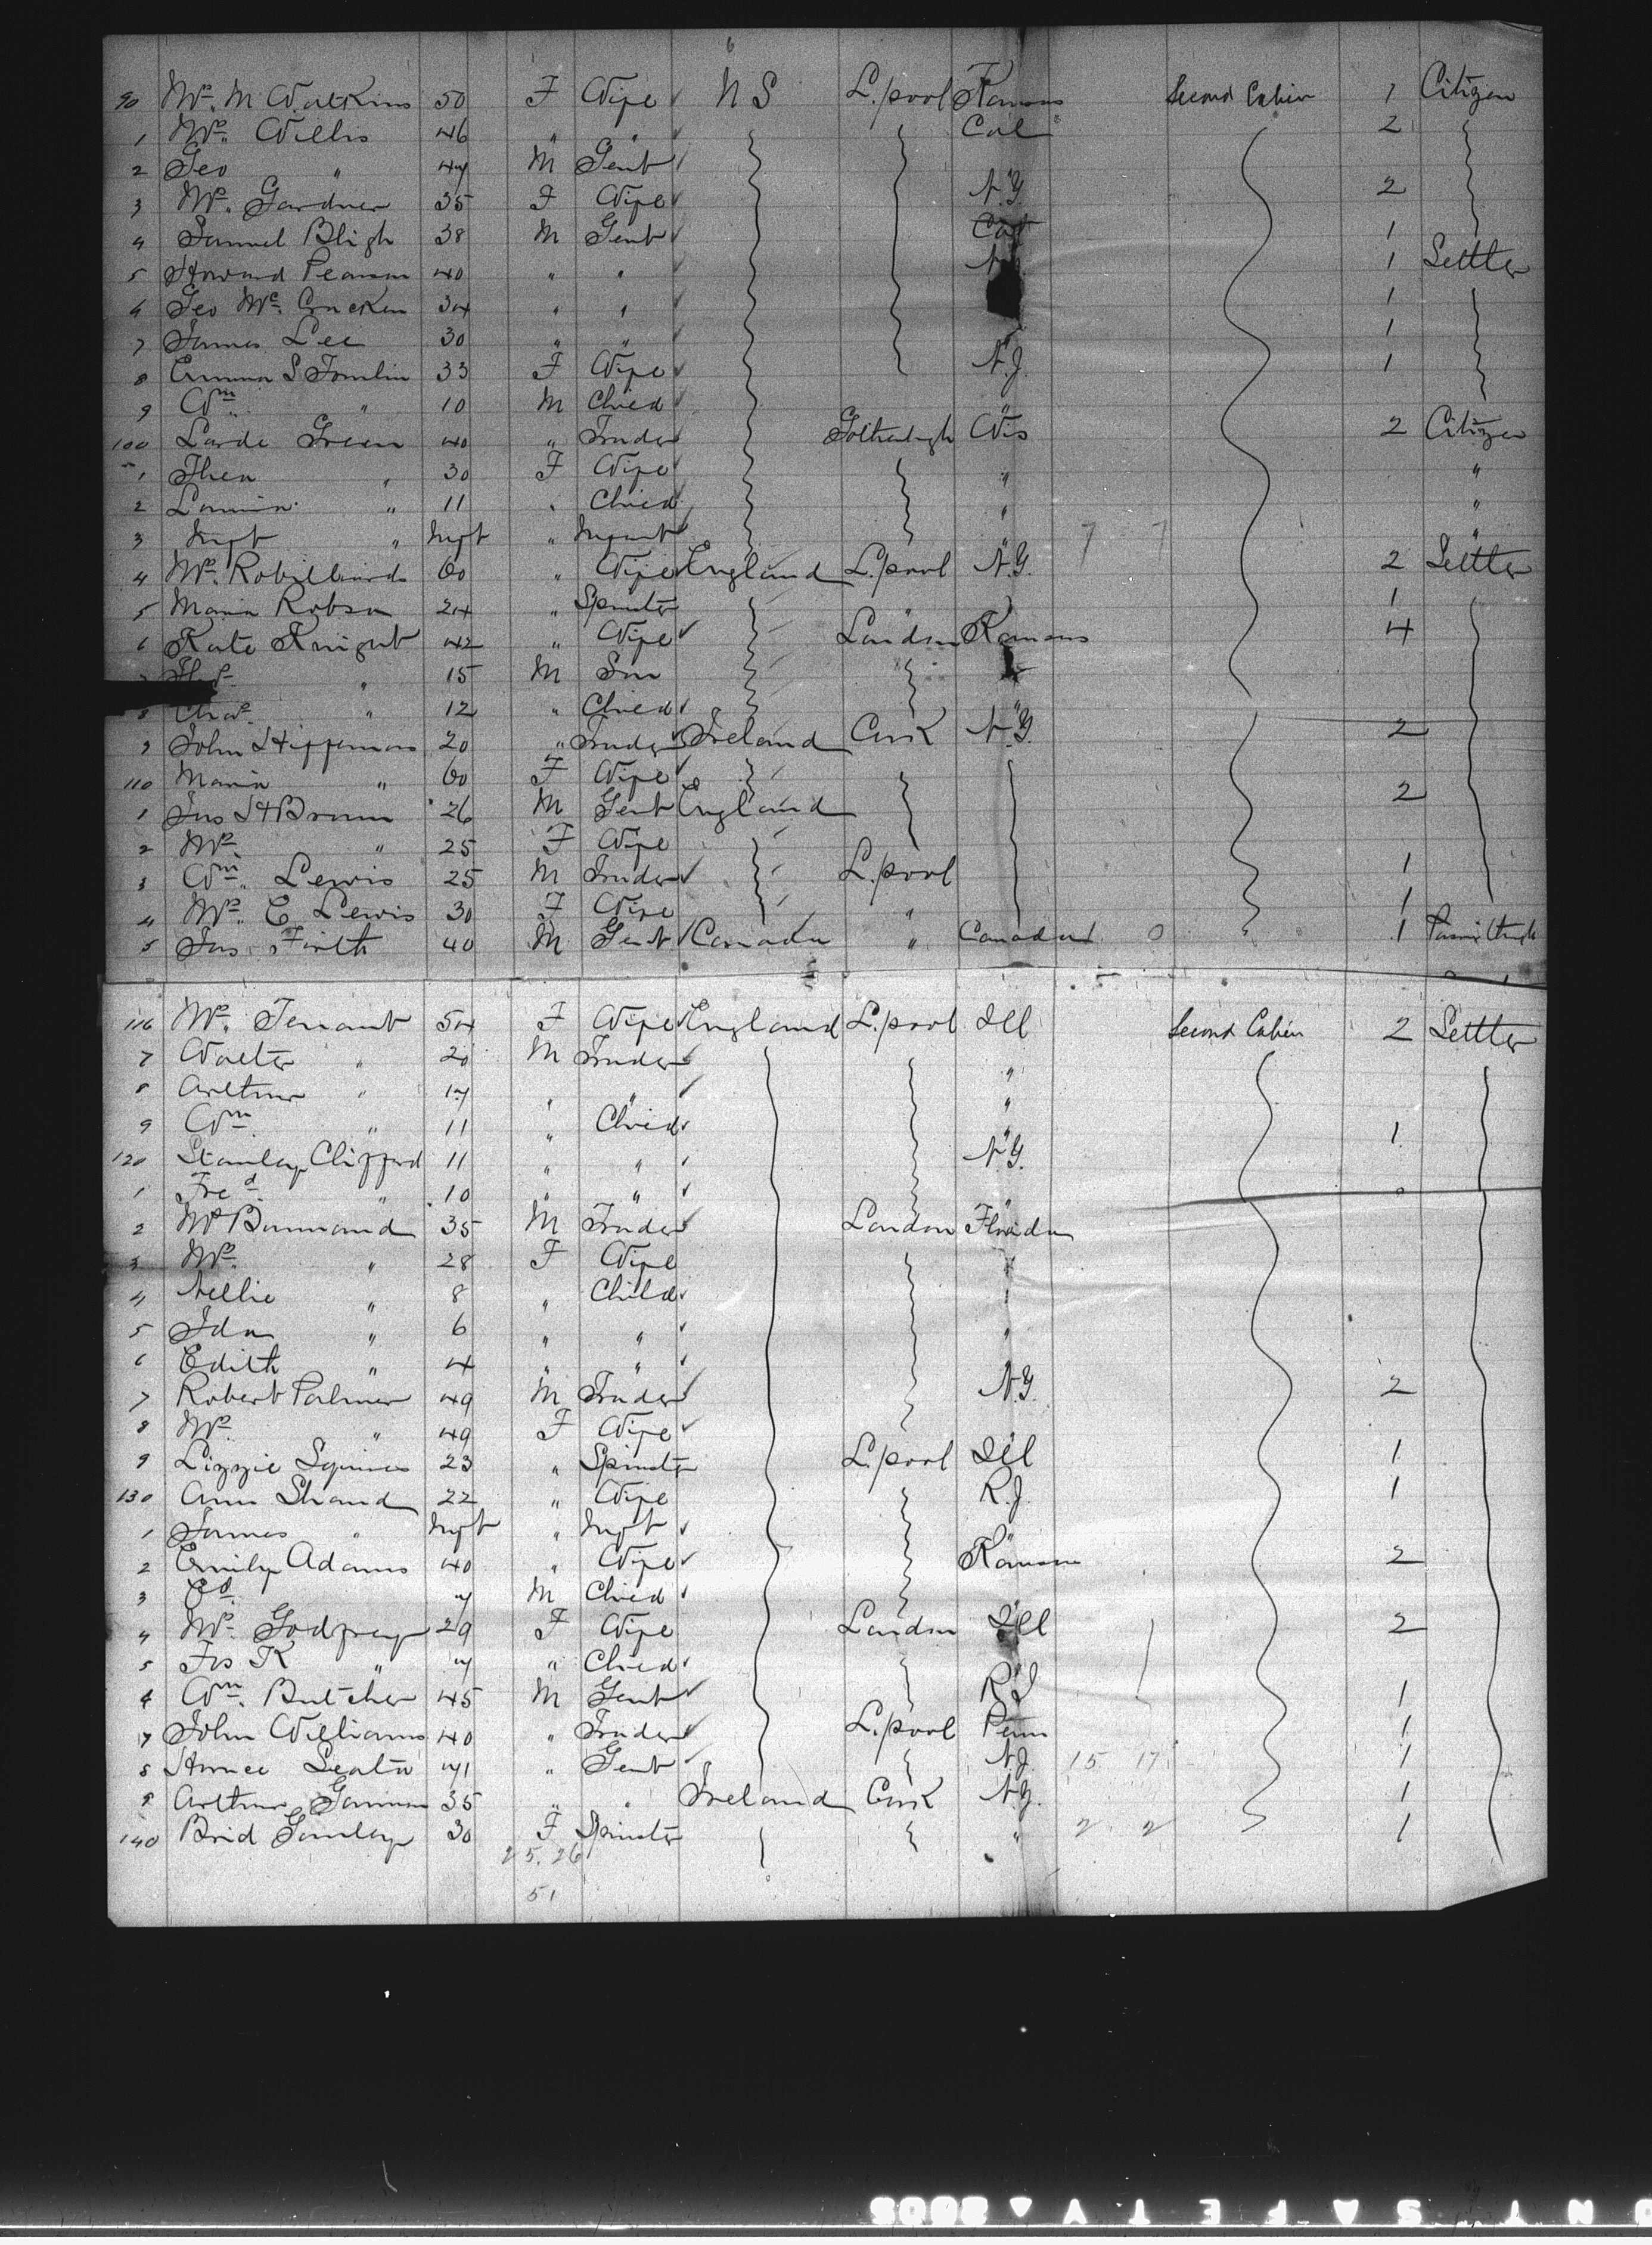 90 Mrs. M Watkins 50 F Wife U S L.pool Kansas Second Cabin 1 Citizen
1 Mrs. Willis 46 " " Cal 2
2 Geo " 47 M Gent "
3 Mrs. Gardner 35 F Wife N.Y. 2
4 Samuel Bligh 38 M Gent Cal 1
5 Howard Pearson 40 " " 1 Settler
6 Geo Mc. Cracken 34 " " 1
7 James Lee 30 " " 1
8 Emma S Tomlin 33 F Wife N.J. 1
9 Wm. " 10 M Child "
100 Green 40 " Trader Wis 2 Citizen
1 Thea " 30 F Wife " "
2 " 11 " Child " "
3 Inft " Inft " Infant " 7 7 "
4 Mrs. 60 " Wife England L.pool N.Y. 2 Settler
5 Maria Robson 24 " Spinster " " 1
6 Kate Knight 42 " Wife London Kansas 4
" 15 M Son "
8 Chas. " 12 " Child "
9 John Heffernan 20 " Trader Ireland Cork N.Y. 2
110 Maria " 60 F Wife
1 Jas H Brown 26 M Gent England 2
2 Mrs. " 25 F Wife
3 Wm. Lewis 25 M Trader L.pool 1
4 Mrs. E Lewis 30 F Wife " 1
5 Jas. Firth 40 M Gent Canada " Canada 0 " 1
116 Mrs. Tennant 54 F Wife England L.pool Ill Second Cabin 2 Settler
7 Walter " 20 M Trader "
8 Arthur " 17 " " "
9 Wm. " 11 " Child " 1
120 Stanley Clifford 11 " " N.Y.
1 Fred. " 10 " " "
2 35 M Trader London Florida
3 Mrs. " 28 F Wife "
4 Nellie " 8 " Child "
5 Ida " 6 " " "
6 Edith " 4 " " "
7 Robert Palmer 49 M Trader N.Y. 2
8 Mrs. " 49 F Wife "
9 Lizzie Squires 23 " Spinster L.pool Ill 1
130 Ann Shand 22 " Wife R.I. 1
1 James " Inft " Inft "
2 Emily Adams 40 " Wife Kansas 2
3 Ed. " 7 M Child "
4 Mrs. Godfrey 29 F Wife London Ill 2
5 Jas K " 7 " Child "
6 Wm. Butcher 45 M Gent R.I 1
7 John Williams 40 " Trader L.pool Penn 1
8 Horace 41 " Gent N.J. 15 17 1
9 Arthur 35 " " Ireland Cork N.Y. 1
140 Brid 30 F Spinster " 2 2 1
25. 26
51
SAFETY